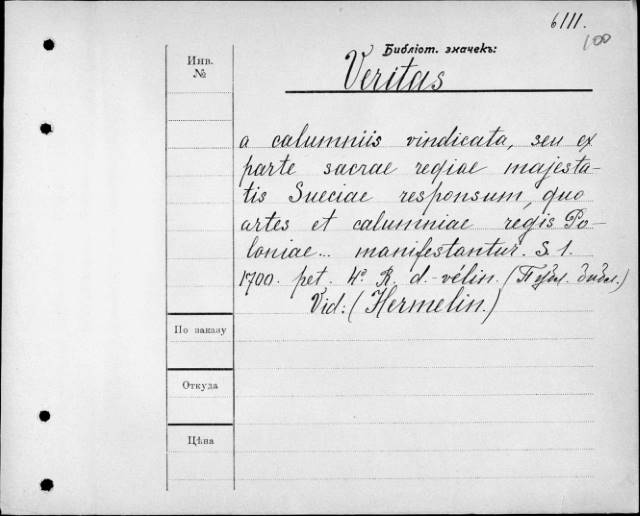 6111.
100
Библіот. значекъ:
Инв.
№
Veritas
a calumniis vindicata, seu ex
parte sacrae regiae majesta-
tis Sueciae responsum, quo
artes et calumniae regis Po-
loniae... manifestantur. S. l.
1700. pet. 4º. R. d.-vélin. (Публ. библ.)
Vid: (Hermelin.)
По заказу
Откуда
Цѣна